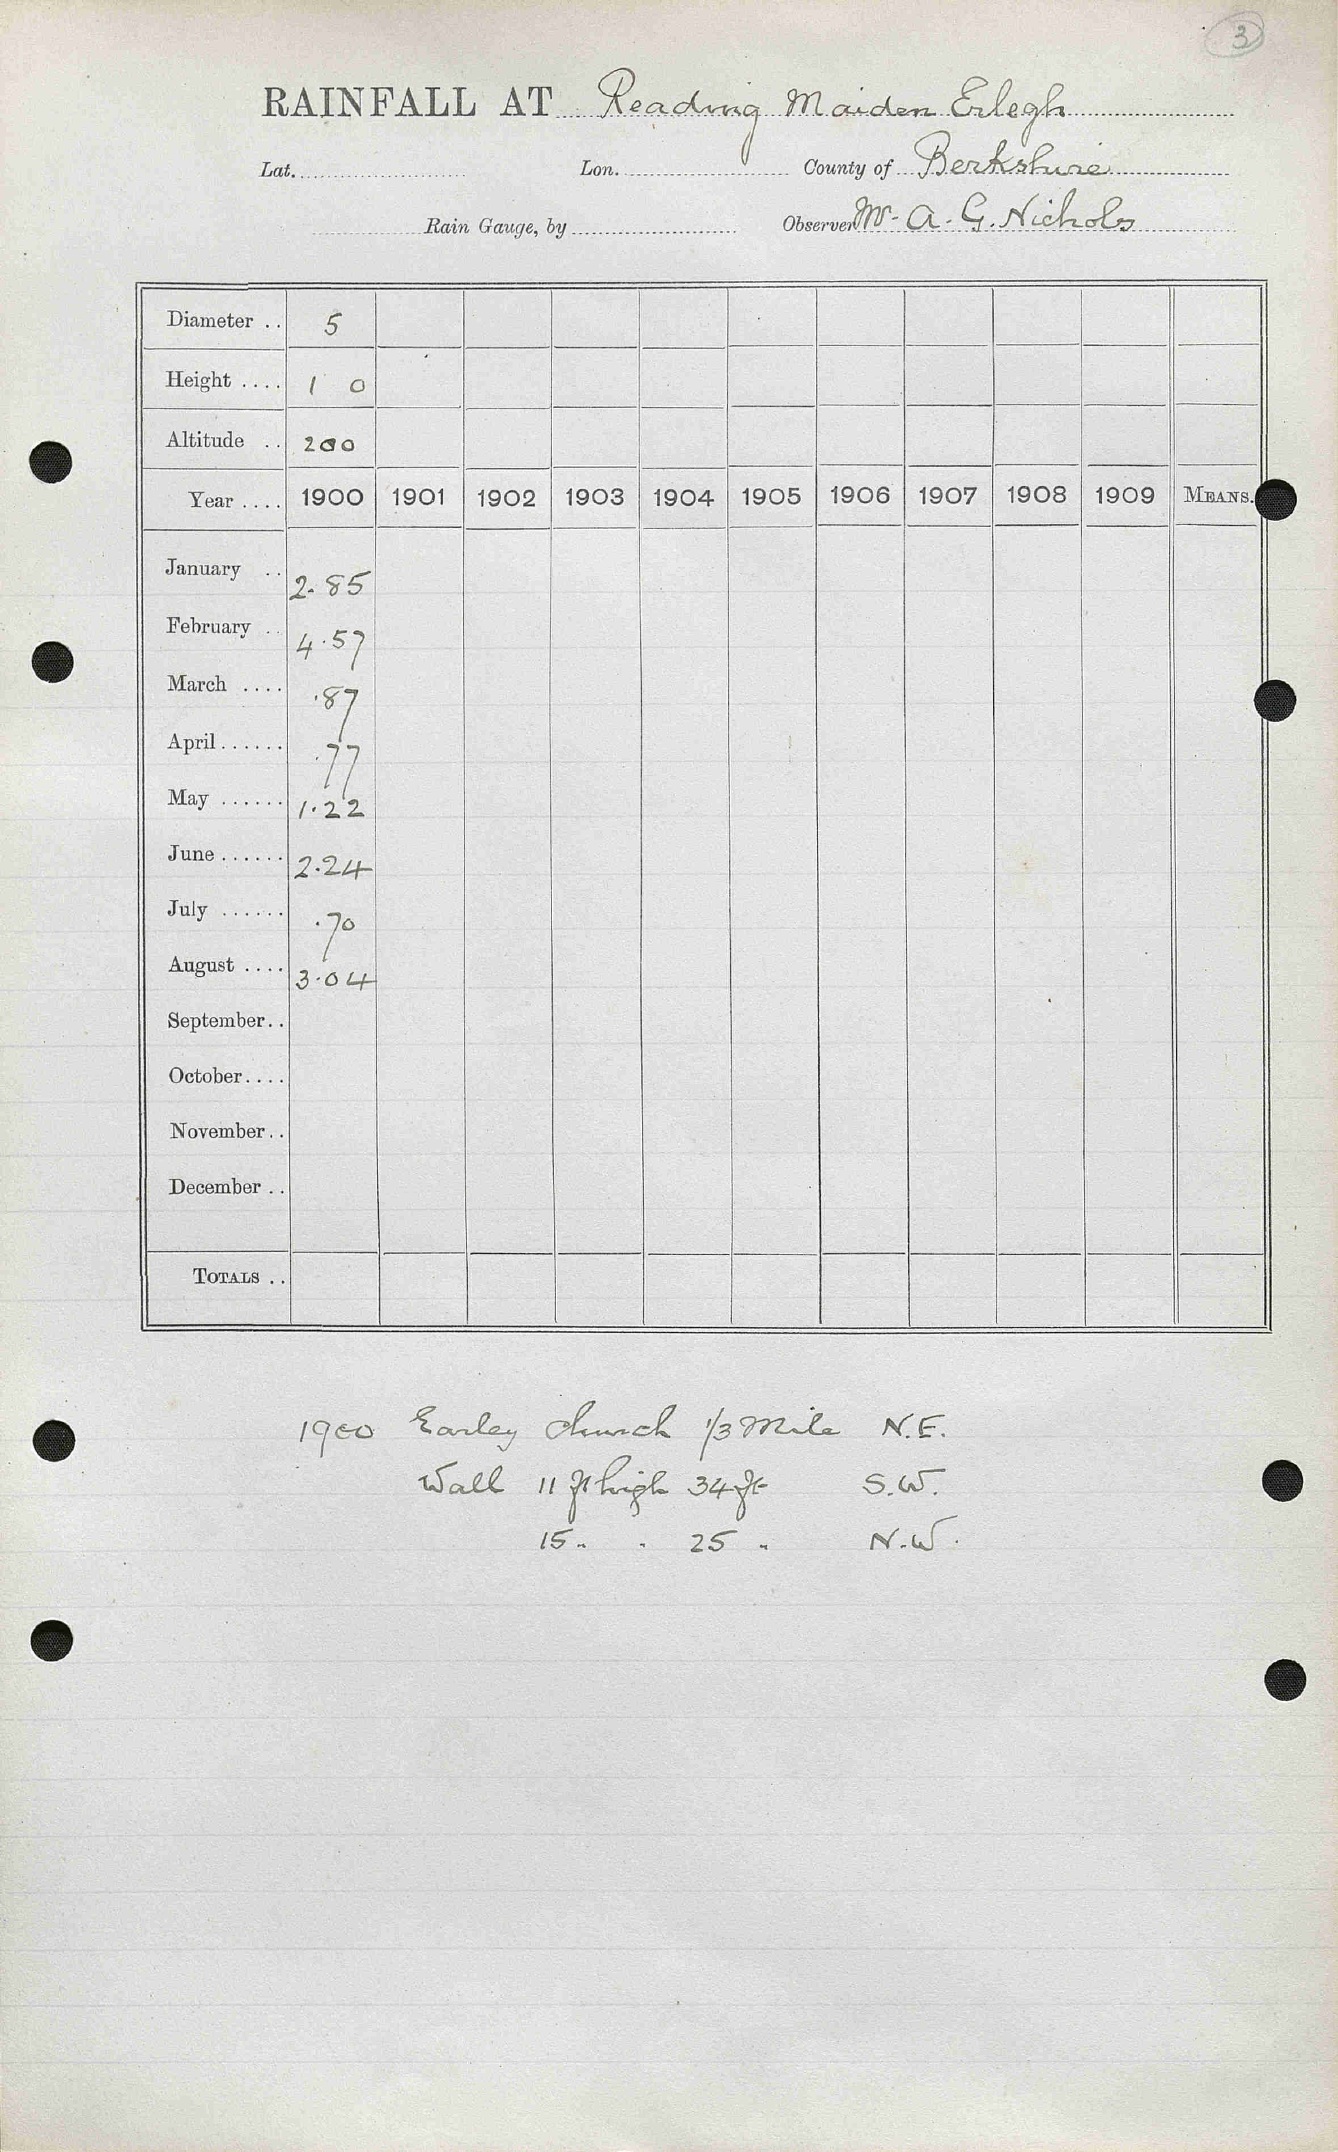 3
RAINFALL AT Reading Maiden Erlegh
Lat. Lon. County of Berkshire
Rain Gauge, by Observer Mr. A. G. Nichols
Diameter .. 5
Height .... 1 0
Altitude .. 200
Year .... 1900 1901 1902 1903 1904 1905 1906 1907 1908 1909 MEANS.
January .. 2.85
February .. 4.57
March .... .87
April ...... .77
May ...... 1.22
June ...... 2.24
July ...... .70
August .... 3.04
September..
October....
November..
December ..
TOTALS ..
1900 Earley Church 1/3 Mile N.E.
Wall 11 ft high 34 ft S.W.
15 " " 25 " N.W.